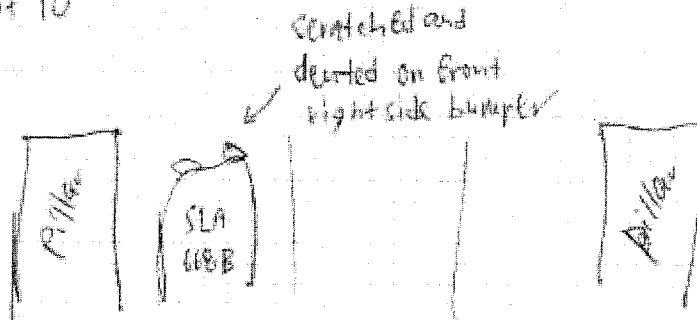 10
scratched and
dented on front
right side bumper
Pillar
SLA
Pillar